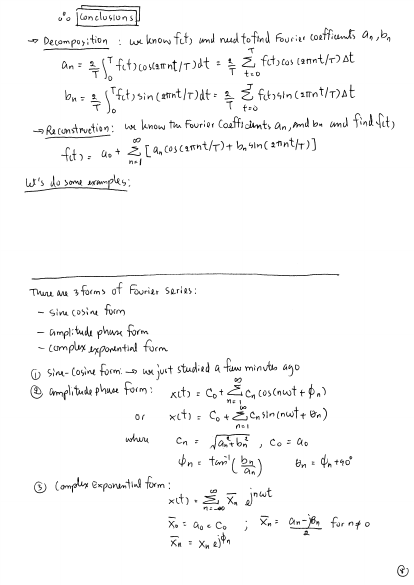 ∴ Conclusions
→ Decomposition : we know f(t) and need to find Fourier coefficients an, bn
an = 2/T ∫₀ᵀ f(t) cos(2πnt/T) dt = 2/T Σ_{t=0}^{T} f(t) cos(2πnt/T) Δt
bn = 2/T ∫₀ᵀ f(t) sin(2πnt/T) dt = 2/T Σ_{t=0}^{T} f(t) sin(2πnt/T) Δt
→ Reconstruction : we know the Fourier Coefficients an, and bn and find f(t)
f(t) = a0 + Σ_{n=1}^{∞} [an cos(2πnt/T) + bn sin(2πnt/T)]
Let's do some examples:
There are 3 forms of Fourier Series:
- Sine cosine form
- amplitude phase form
- complex exponential form
① Sine-Cosine form: → we just studied a few minutes ago
② amplitude phase form: x(t) = C0 + Σ_{n=1}^{∞} Cn cos(nωt + φn)
or x(t) = C0 + Σ_{n=1}^{∞} Cn sin(nωt + θn)
where Cn = √(an² + bn²) , C0 = a0
φn = tan⁻¹(bn/an) θn = φn + 90°
③ Complex exponential form :
x(t) = Σ_{n=-∞}^{∞} X̄n e^{jnωt}
X̄0 = a0 = C0 ; X̄n = (an - jbn)/2 for n ≠ 0
X̄n = Xn e^{jφn}